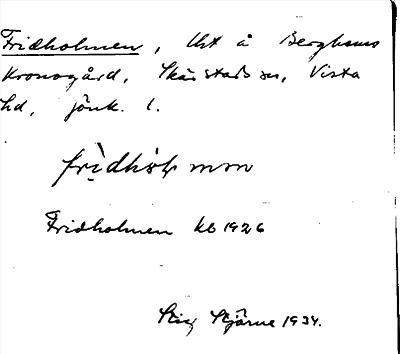 Fridholmen, lht å Berghems
Kronogård, Skärstads sn, Vista
hd, Jönk. l.
frìdhòḷmən
Fridholmen kb 1926
Stig Stjärne 1934.